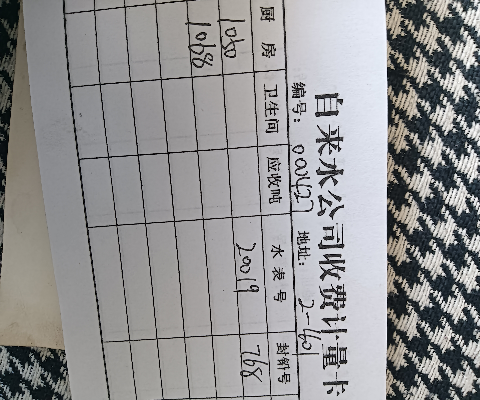 自来水公司收费计量卡
编号: 0001427 地址: 2-401
厨房 卫生间 应收吨 水表号 封铅号
1050 20019 768
1068